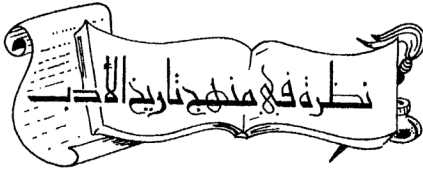 نظرة في منهج تاريخ الأدب